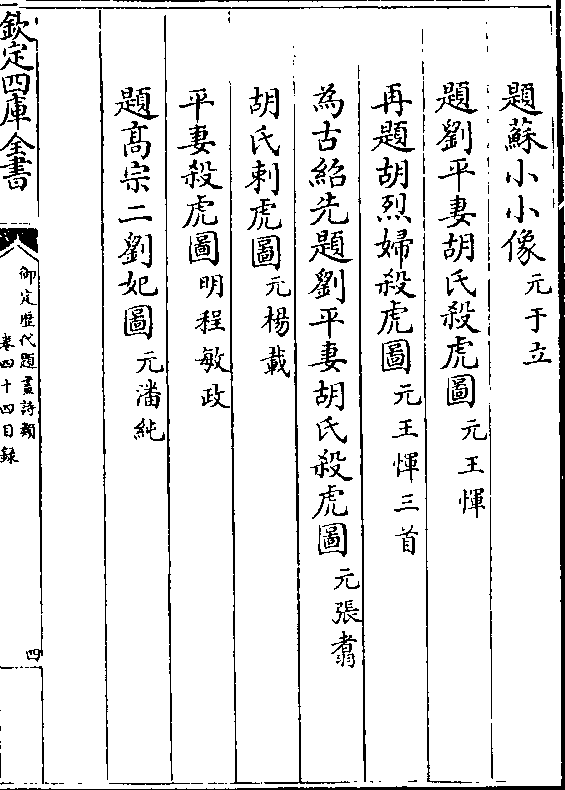 題蘇小小像元于立
題劉平妻胡氏殺虎圖元王惲
再題胡烈婦殺虎圖元王惲三首
為古紹先題劉平妻胡氏殺虎圖元張翥
胡氏刺虎圖元楊載
平妻殺虎圖明程敏政
題髙宗二劉妃圖元潘純
欽定四庫全書
御定歴代題畫詩類
卷四十四目録
四